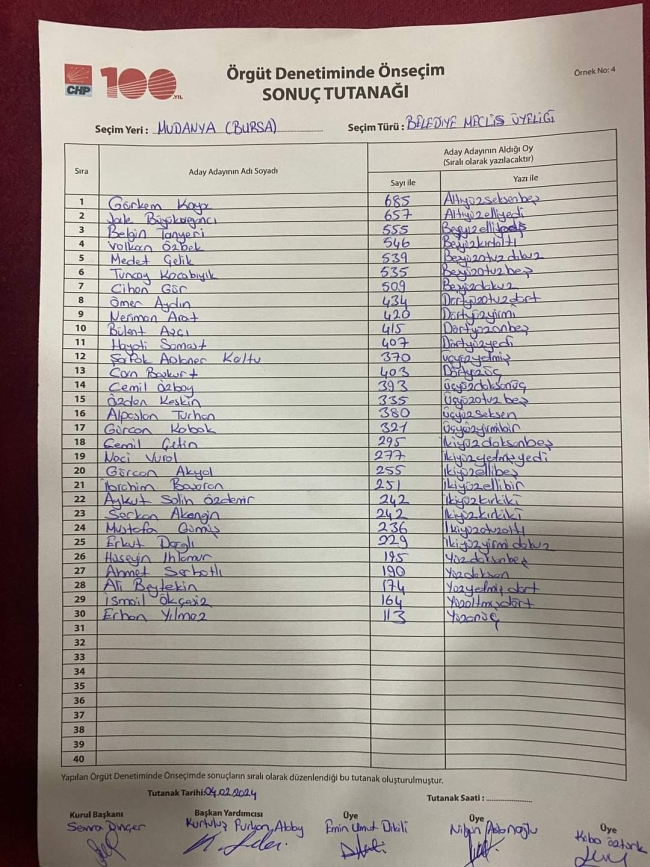 CHP 100. YIL
Örgüt Denetiminde Önseçim
SONUÇ TUTANAĞI
Örnek No: 4
Seçim Yeri : MUDANYA (BURSA)
Seçim Türü : BELEDİYE MECLİS ÜYELİĞİ
Sıra
Aday Adayının Adı Soyadı
Aday Adayının Aldığı Oy
(Sıralı olarak yazılacaktır)
Sayı ile
Yazı ile
1 Görkem Kaya 685 Altıyüzseksenbeş
2 Jale 657 Altıyüzelliyedi
3 Belgin Tanyeri 555
4 Volkan Özbek 546 Beşyüzkırkaltı
5 Medet Çelik 539 Beşyüzotuzdokuz
6 Tuncay Kocabıyık 535 Beşyüzotuzbeş
7 Cihan Gür 509 Beşyüzdokuz
8 Ömer Aydın 434 Dörtyüzotuzdört
9 Neriman Arat 420 Dörtyüzyirmi
10 Bülent Aşçı 415 Dörtyüzonbeş
11 Hayati Samast 407 Dörtyüzyedi
12 Şafak Kaltu 370 üçyüzyetmiş
13 Can Bozkurt 403 Dörtyüzüç
14 Cemil Özbay 393 üçyüzdoksanüç
15 Özden Keskin 335 üçyüzotuzbeş
16 Alpaslan Turhan 380 üçyüzseksen
17 Gürcan Kabak 321 üçyüzyirmibir
18 Cemil Çetin 295 ikiyüzdoksanbeş
19 Naci Vural 277 ikiyüzyetmişyedi
20 Gürcan Akyol 255 ikiyüzellibeş
21 İbrahim Bayıran 251 ikiyüzellibir
22 Aykut Salih Özdemir 242 ikiyüzkırkiki
23 Serkan Akengin 242 ikiyüzkırkiki
24 Mustafa Gümüş 236 ikiyüzotuzaltı
25 Erkut 229 ikiyüzyirmidokuz
26 Hüseyin Ihlamur 195 Yüzdoksanbeş
27 Ahmet Serhatlı 190 Yüzdoksan
28 Ali Beytekin 174 Yüzyetmişdört
29 İsmail Ökçesiz 164 Yüzaltmışdört
30 Erhan Yılmaz 113 Yüzonüç
31
32
33
34
35
36
37
38
39
40
Yapılan Örgüt Denetiminde Önseçimde sonuçların sıralı olarak düzenlendiği bu tutanak oluşturulmuştur.
Tutanak Tarihi: 04.02.2024
Tutanak Saati : ................
Kurul Başkanı Başkan Yardımcısı Üye Üye Üye
Semra Dinçer Kurtuluş Emin Umut Dikili Nilgün Öztürk